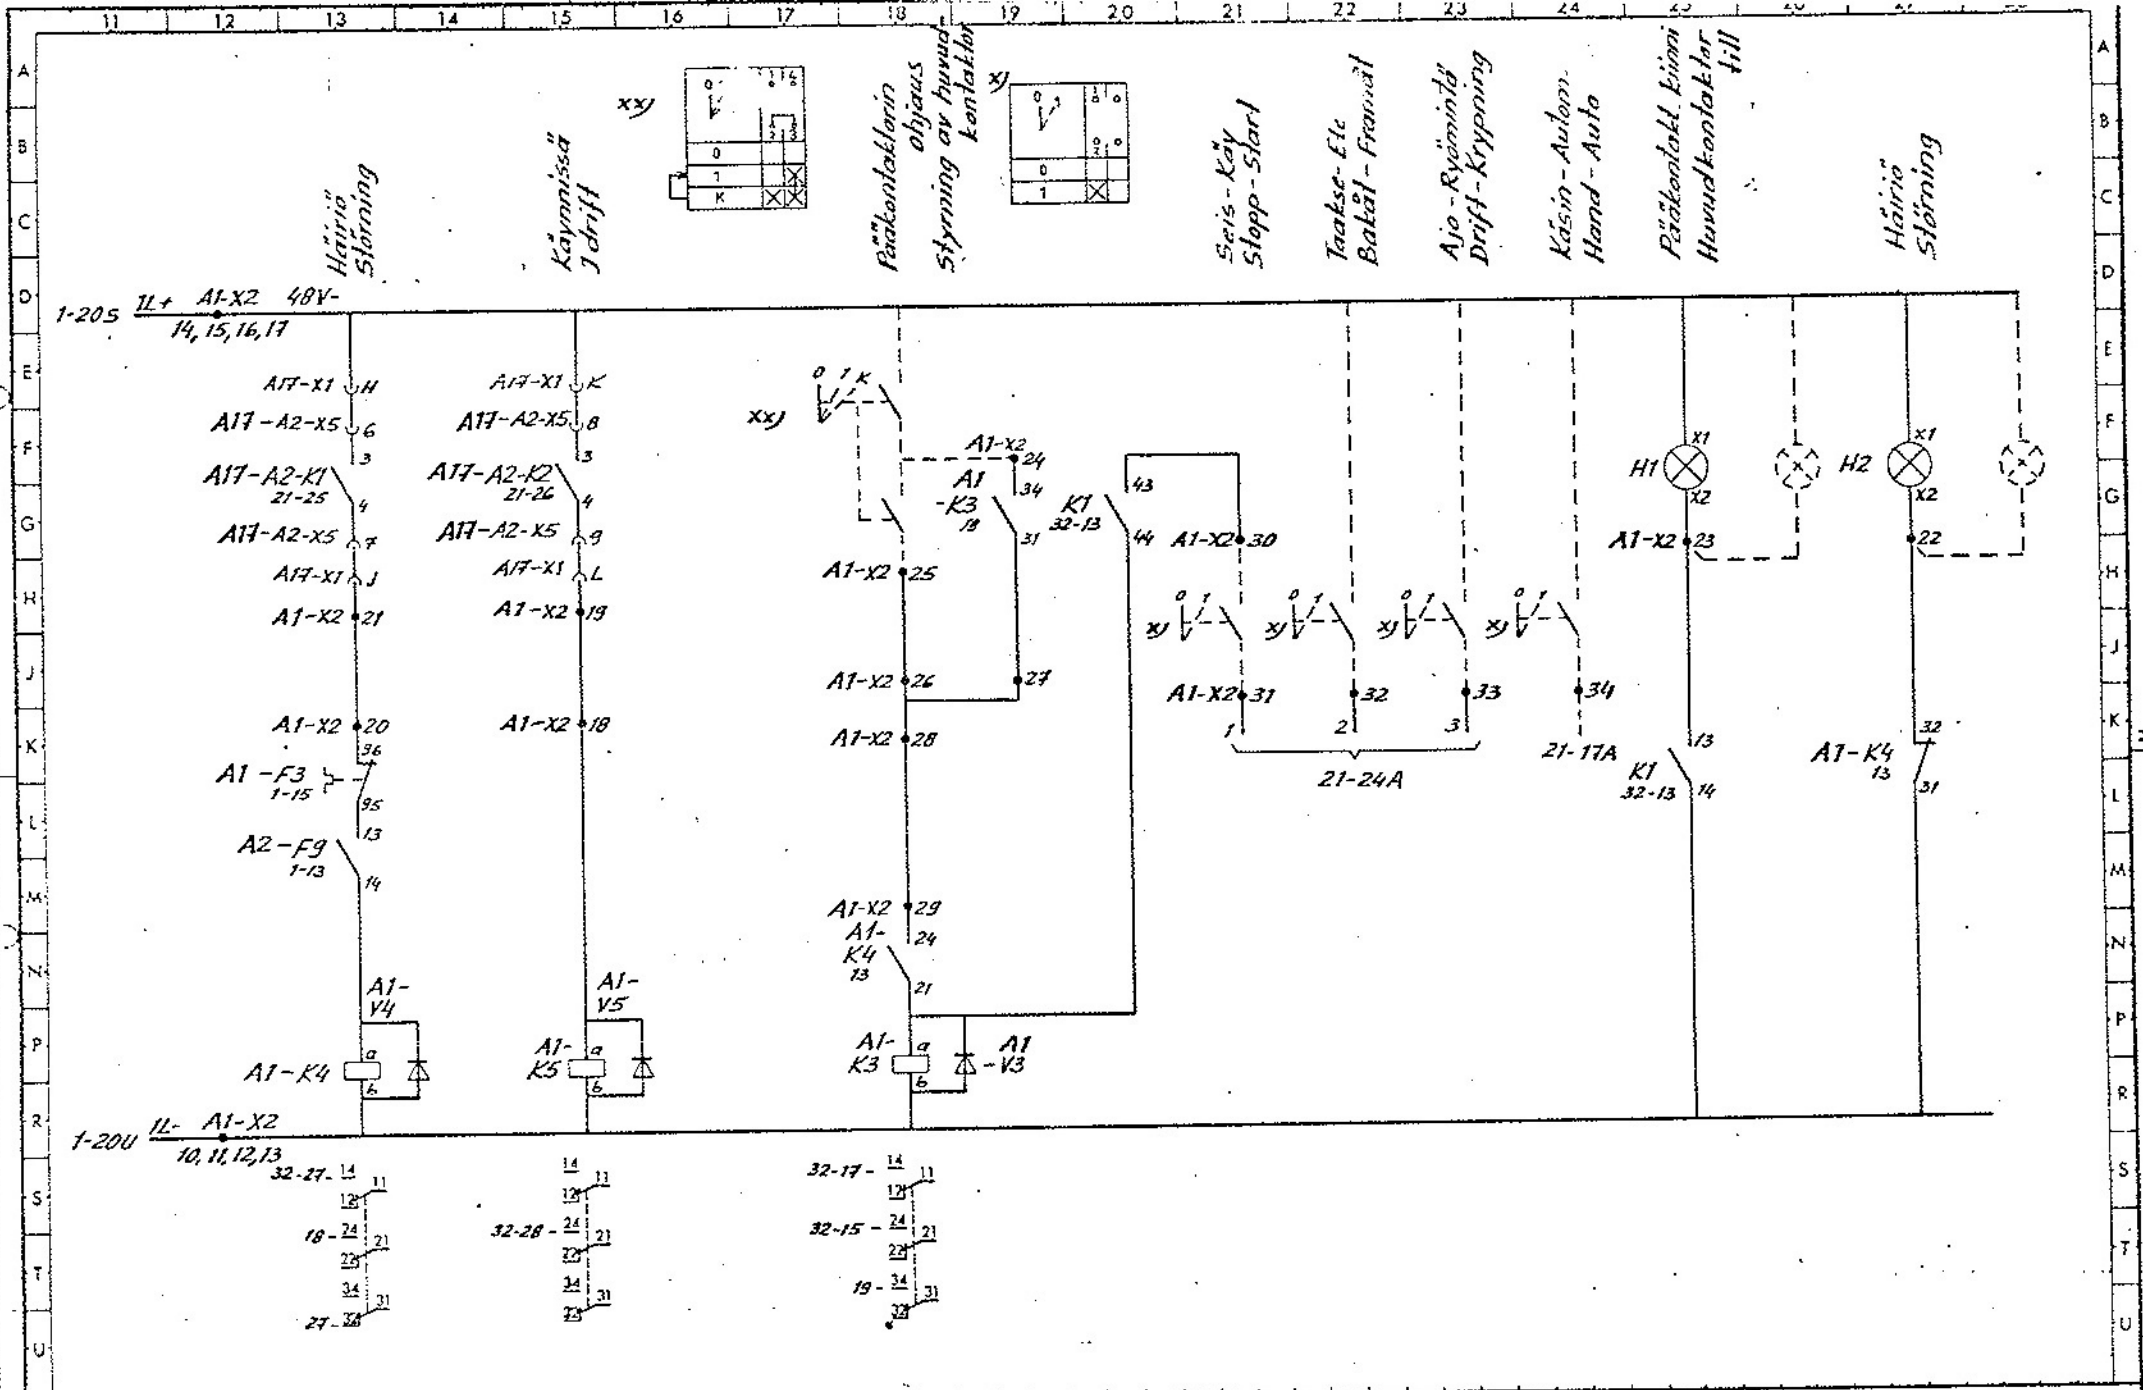 11 12 13 14 15 16 17 18 19 20 21 22 23 24
A
B
C
D
E
F
G
H
J
K
L
M
N
P
R
S
T
U
Häiriö
Störning
Käynnissä
I drift
xx)
0
1
K
Pääkontaktorin
ohjaus
Styrning av huvud
kontaktor
x)
0
1
Seis-Käy
Stopp-Start
Taakse-Ete
Bakåt-Framåt
Ajo-Ryömintä
Drift-Krypning
Käsin-Autom.
Hand-Auto
Pääkontakt. kiinni
Huvudkontaktor
till
Häiriö
Störning
1-20S 1L+ A1-X2 48V-
14, 15, 16, 17
A17-X1 H
A17-A2-X5 6
3
A17-A2-K1
21-25
4
A17-A2-X5 7
A17-X1 J
A1-X2 21
A1-X2 20
96
A1-F3
1-15
95
13
A2-F9
1-13
14
A1-
V4
A1-K4
a
b
A17-X1 K
A17-A2-X5 8
3
A17-A2-K2
21-26
4
A17-A2-X5 9
A17-X1 L
A1-X2 19
A1-X2 18
A1-
V5
A1-
K5
a
b
xx)
0 1 K
A1-X2
24
A1
-K3
18
34
31
A1-X2 25
A1-X2 26
27
A1-X2 28
A1-X2 29
A1-
K4
13
24
21
A1-
K3
a
b
A1
-V3
43
K1
32-13
44
A1-X2 30
x) 0 1
x) 0 1
x) 0 1
x) 0 1
A1-X2 31
32
33
34
1
2
3
21-24A
21-17A
H1
X1
X2
A1-X2 23
13
K1
32-13
14
H2
X1
X2
22
32
A1-K4
13
31
1-20U 1L- A1-X2
10, 11, 12, 13
32-27- 14
11
12
18- 24
21
22
34
31
27- 32
14
11
12
32-28- 24
21
22
34
31
32
32-17- 14
11
12
32-15- 24
21
22
19- 34
31
32